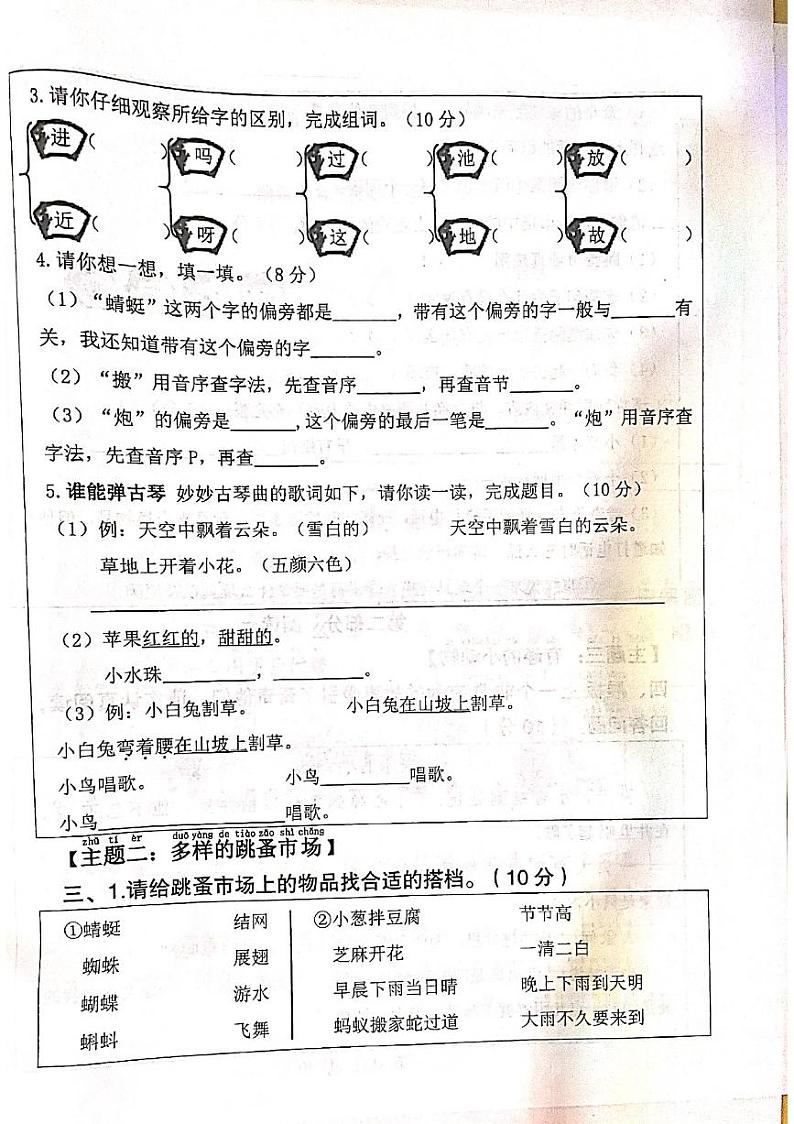 3.请你仔细观察所给字的区别，完成组词。（10分）
进（ ） 吗（ ） 过（ ） 池（ ） 放（ ）
近（ ） 呀（ ） 这（ ） 地（ ） 故（ ）
4.请你想一想，填一填。（8分）
（1）“蜻蜓”这两个字的偏旁都是______，带有这个偏旁的字一般与______有
关，我还知道带有这个偏旁的字______。
（2）“搬”用音序查字法，先查音序______，再查音节______。
（3）“炮”的偏旁是______,这个偏旁的最后一笔是______。“炮”用音序查
字法，先查音序P，再查______。
5.谁能弹古琴 妙妙古琴曲的歌词如下，请你读一读，完成题目。（10分）
（1）例：天空中飘着云朵。（雪白的） 天空中飘着雪白的云朵。
草地上开着小花。（五颜六色）
（2）苹果红红的，甜甜的。
小水珠________，________。
（3）例：小白兔割草。 小白兔在山坡上割草。
小白兔弯着腰在山坡上割草。
小鸟唱歌。 小鸟________唱歌。
小鸟________________唱歌。
zhǔ tí èr duō yàng de tiào zǎo shì chǎng
【主题二：多样的跳蚤市场】
三、1.请给跳蚤市场上的物品找合适的搭档。（10分）
①蜻蜓 结网 ②小葱拌豆腐 节节高
蜘蛛 展翅 芝麻开花 一清二白
蝴蝶 游水 早晨下雨当日晴 晚上下雨到天明
蝌蚪 飞舞 蚂蚁搬家蛇过道 大雨不久要来到